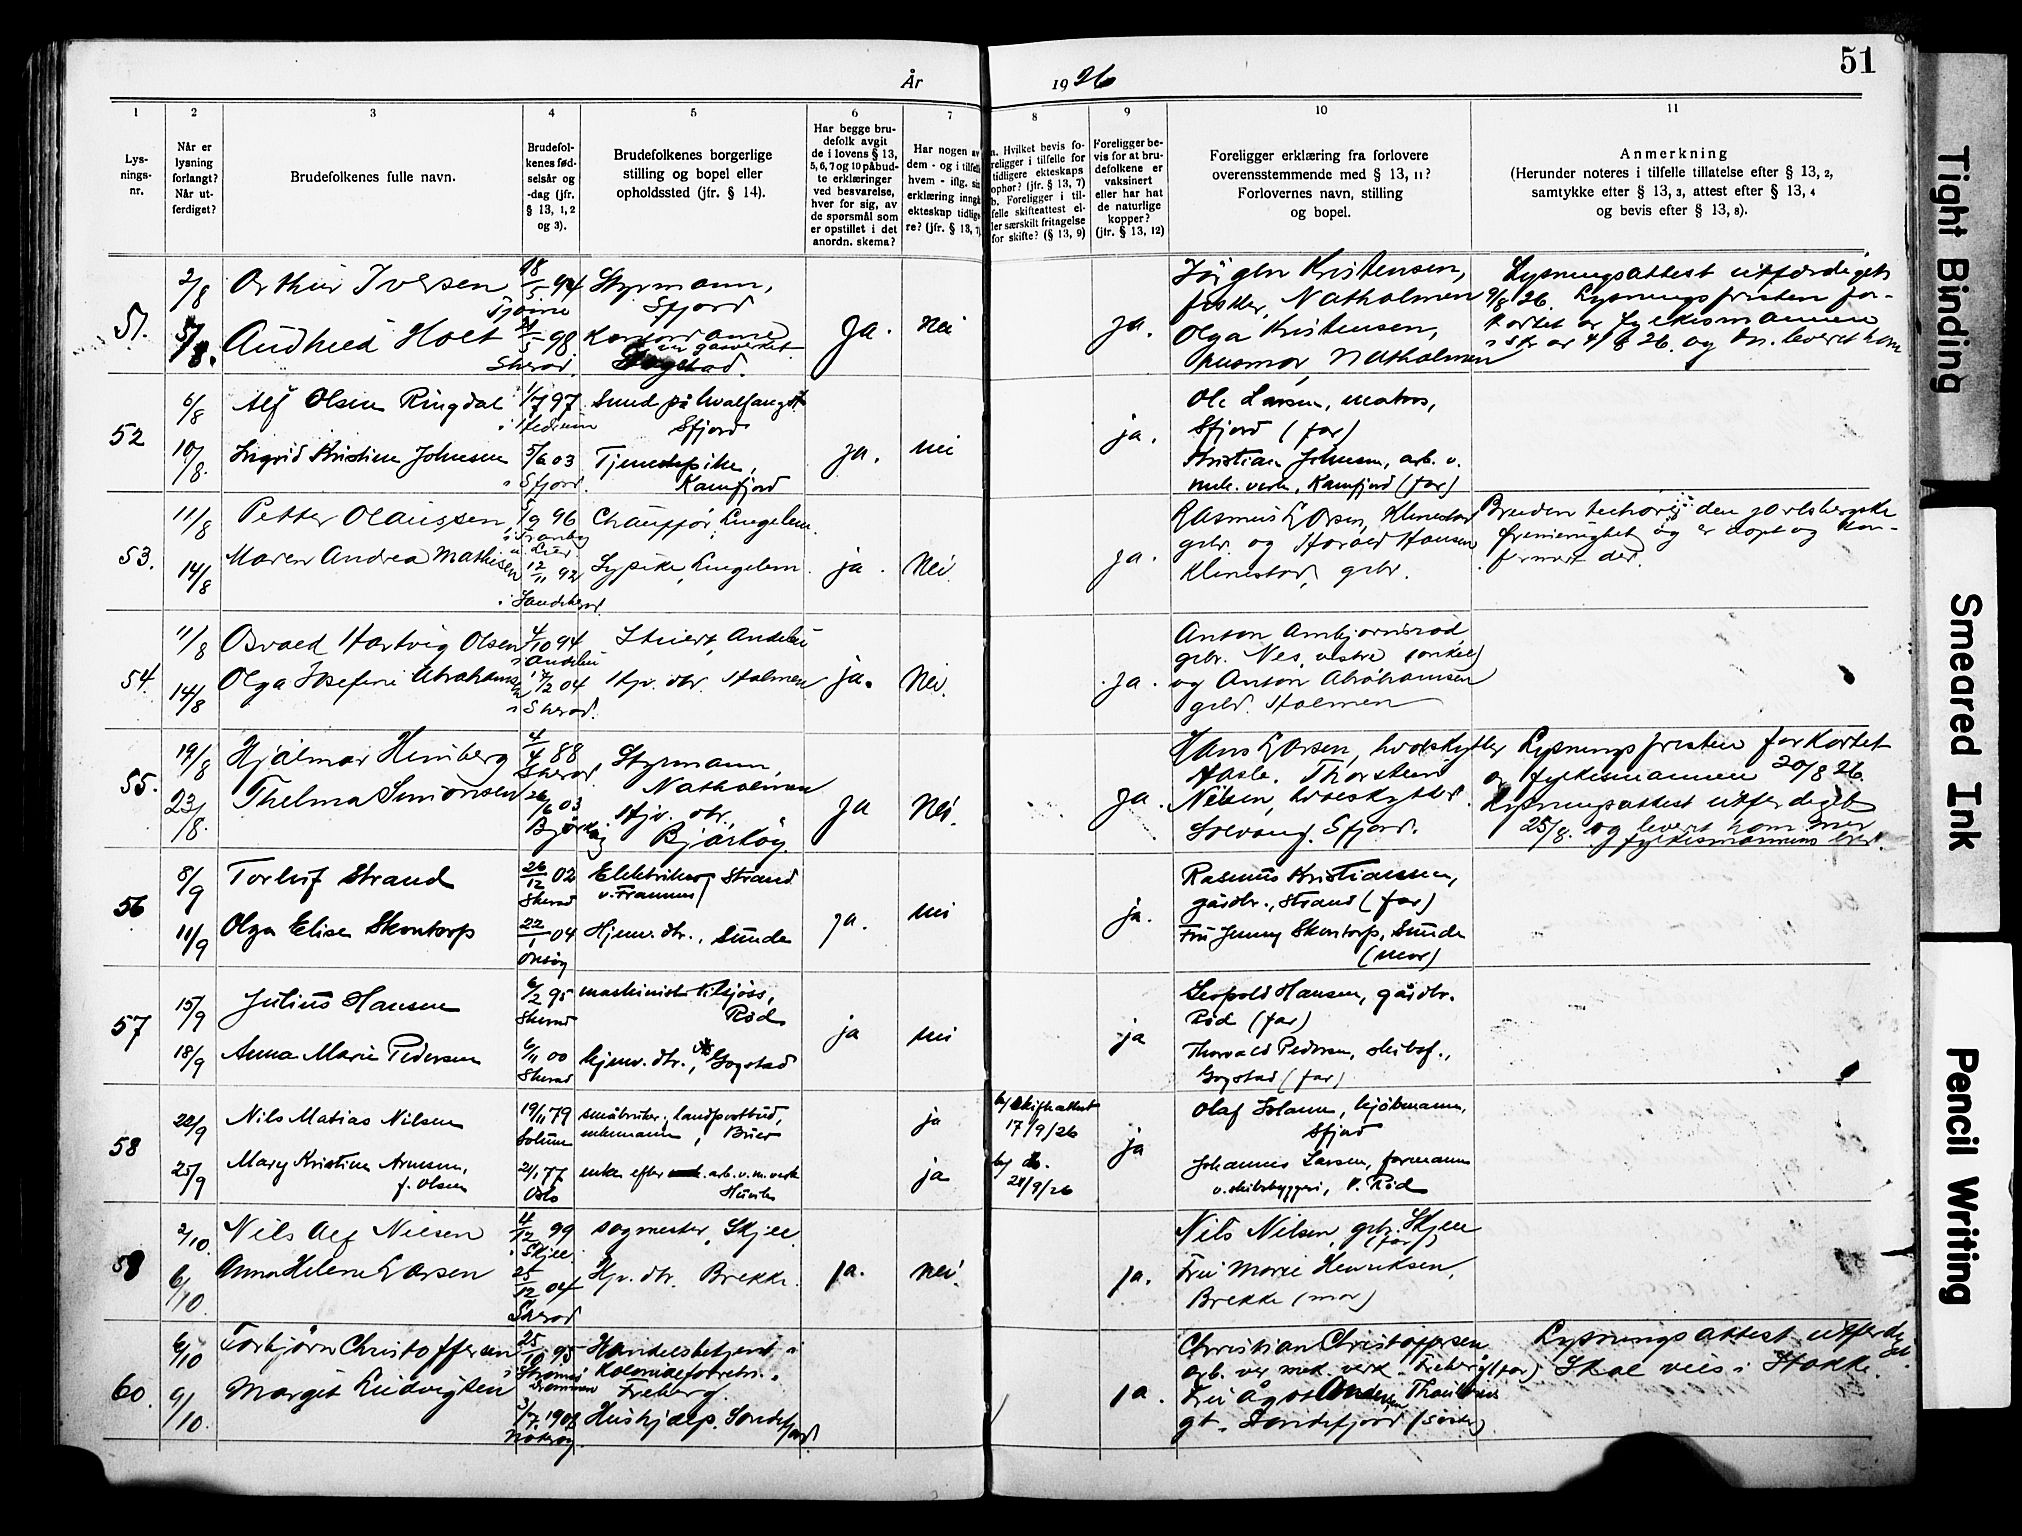 51
År 1926
1
Lys-
nings-
nr.
2
Når er
lysning
forlangt?
Når ut-
ferdiget?
3
Brudefolkenes fulle navn.
4
Brudefol-
kenes fød-
selsår og
-dag (jfr.
§ 13, 1, 2
og 3).
5
Brudefolkenes borgerlige
stilling og bopel eller
opholdssted (jfr. § 14).
6
Har begge bru-
defolk avgit
de i lovens § 13,
5, 6, 7 og 10 påbud-
te erklæringer
ved besvarelse,
hver for sig, av
de spørsmål som
er opstillet i det
anordn. skema?
7
Har nogen av
dem - og i tilfelle
hvem - iflg. sin
erklæring inngå
ekteskap tidlige-
re? (jfr. § 13, 7)
8
a. Hvilket bevis fo-
religger i tilfelle for
tidligere ekteskaps
ophør? (jfr. § 13, 7)
b. Foreligger i til-
felle skifteattest el-
ler særskilt fritagelse
for skifte? (§ 13, 9)
9
Foreligger be-
vis for at bru-
defolkene er
vaksinert
eller har hat
de naturlige
kopper?
(jfr. § 13, 12)
10
Foreligger erklæring fra forlovere
overensstemmende med § 13, 11?
Forlovernes navn, stilling
og bopel.
11
Anmerkning
(Herunder noteres i tilfelle tillatelse efter § 13, 2,
samtykke efter § 13, 3, attest efter § 13, 4
og bevis efter § 13, 8).
51.
2/8
5/8.
Arthur Iversen
Audhild Holt
18/5 94
Tjøme
98
Skerød.
Styrmann,
Sfjord
Kontordame
ved gasverket
ja.
nei
ja.
Jørgen Kristensen,
fisker, Natholmen
Olga Kristensen,
husmor, Natholmen
Lysningsattest utferdiget
9/8 26. Lysningsfristen for-
kortet av fylkesmannen
av 4/8 26. og levert ham
52
6/8
10/8.
Alf Olsen Ringdal
Ingrid Kristine Johnsen
1/7 97
5/6 03
i Sfjord.
Smed på hvalfangst
Sfjord
Tjenestepike,
Kamfjord
ja.
nei
ja.
Ole Larsen, matros,
Sfjord (far)
Kristian Johnsen, arb. v.
mek. verk., Kamfjord (far)
53.
11/8
14/8
Petter Olaussen
Maren Andrea Mathisen
96
i Tranby
i Lier.
12/11 92
i Sandeherad.
Chauffør, Lingelem.
Sypike, Lingelem
ja.
Nei.
ja.
Rasmus Larsen, Klinestad
gbr. og Harald Hansen
Klinestad, gbr.
Bruden tilhører den jarlsbergske
frimenighet og er døpt og kon-
firmert der.
54.
11/8
14/8
Osvald Hartvig Olsen
Olga Josefine Abrahamsen
4/10 94
i Andebu
17/12 04
i Skerød.
Stuert, Andebu
Hjv. dtr. Holmen
ja.
Nei.
ja.
Anton Ambjørnsrød,
gbr. Nes, vestre (onkel)
og Anton Abrahamsen
gbr. Holmen
55.
19/8
23/8.
Hjalmar Himberg
Thelma Simonsen
4/4 88
Skerød,
26/6 03
Styrmann,
Natholmen
Hjv. dtr,
Bjørkøy.
ja
Nei.
ja.
Hans Larsen, hvalskytter
Hasle. Thorstein
Nilsen, hvalskytter.
Solvang, Sfjord.
Lysningsfristen forkortet
av fylkesmannen 20/8 26.
Lysningsattest utferdiget
25/8. og levert ham med
fylkesmannens brev.
56
8/9
11/9
Torleif Strand
Olga Elise Skontorp
26/12 02
Skerød
22/1 04
Onsøy
Elektriker, Strand
v. Framnæs
Hjemv. dtr., Sunde
ja.
nei
ja.
Rasmus Kristiansen,
gårdbr., Strand (far)
Fru Jenny Skontorp, Sunde
(mor)
57
15/9
18/9
Julius Hansen
Anna Marie Pedersen
6/2 95
Skerød
6/11 00
Skerød
maskinist tilsjøss,
Rød
hjemv. dtr., Gogstad
ja
nei
ja
Leopold Hansen, gårdbr.
Rød (far)
Thorvald Pedersen, skibsf.,
Gogstad (far)
58
22/9
25/9
Nils Matias Nilsen
Mary Kristine Arnesen,
f. Olsen
19/11 79
Solum
21/1 77
Oslo
småbruker, landpostbud,
enkemann, Buer
enke efter arb. v. m. verk
Huvik
ja
ja
b) skifteattest
17/9/26
b) do.
21/9/26
ja
Olaf Solum, kjøbmann,
Sfjord
Johannes Larsen, formann
v. skibsbyggeri, V. Rød
59
2/10.
6/10.
Nils Alf Nilsen
Anna Helene Larsen
4/12 99
i Skjell.
25/12 04
Skerød
sagmester, Skjell.
Hjv. dtr. Brekke.
ja.
nei.
ja.
Nils Nilsen, gbr. Skjell
(far)
Fru Marie Henriksen,
Brekke (mor)
60.
6/10
9/10.
Torbjørn Christoffersen
Margit Ludvigsen
25/10 95
Strømsø
Drammen
3/7. 1908
Nøterøy.
Handelsbetjent i
Kolonialforretn.
Freberg.
Hushjælp. Sandefjord.
ja.
Christian Christoffersen
arb. ved mek. verk. Freberg (far)
gt. Sandefjord (søster)
Lysningsattest utferdiget.
Skal vies i Stokke.
Tight Binding
Smeared Ink
Pencil Writing